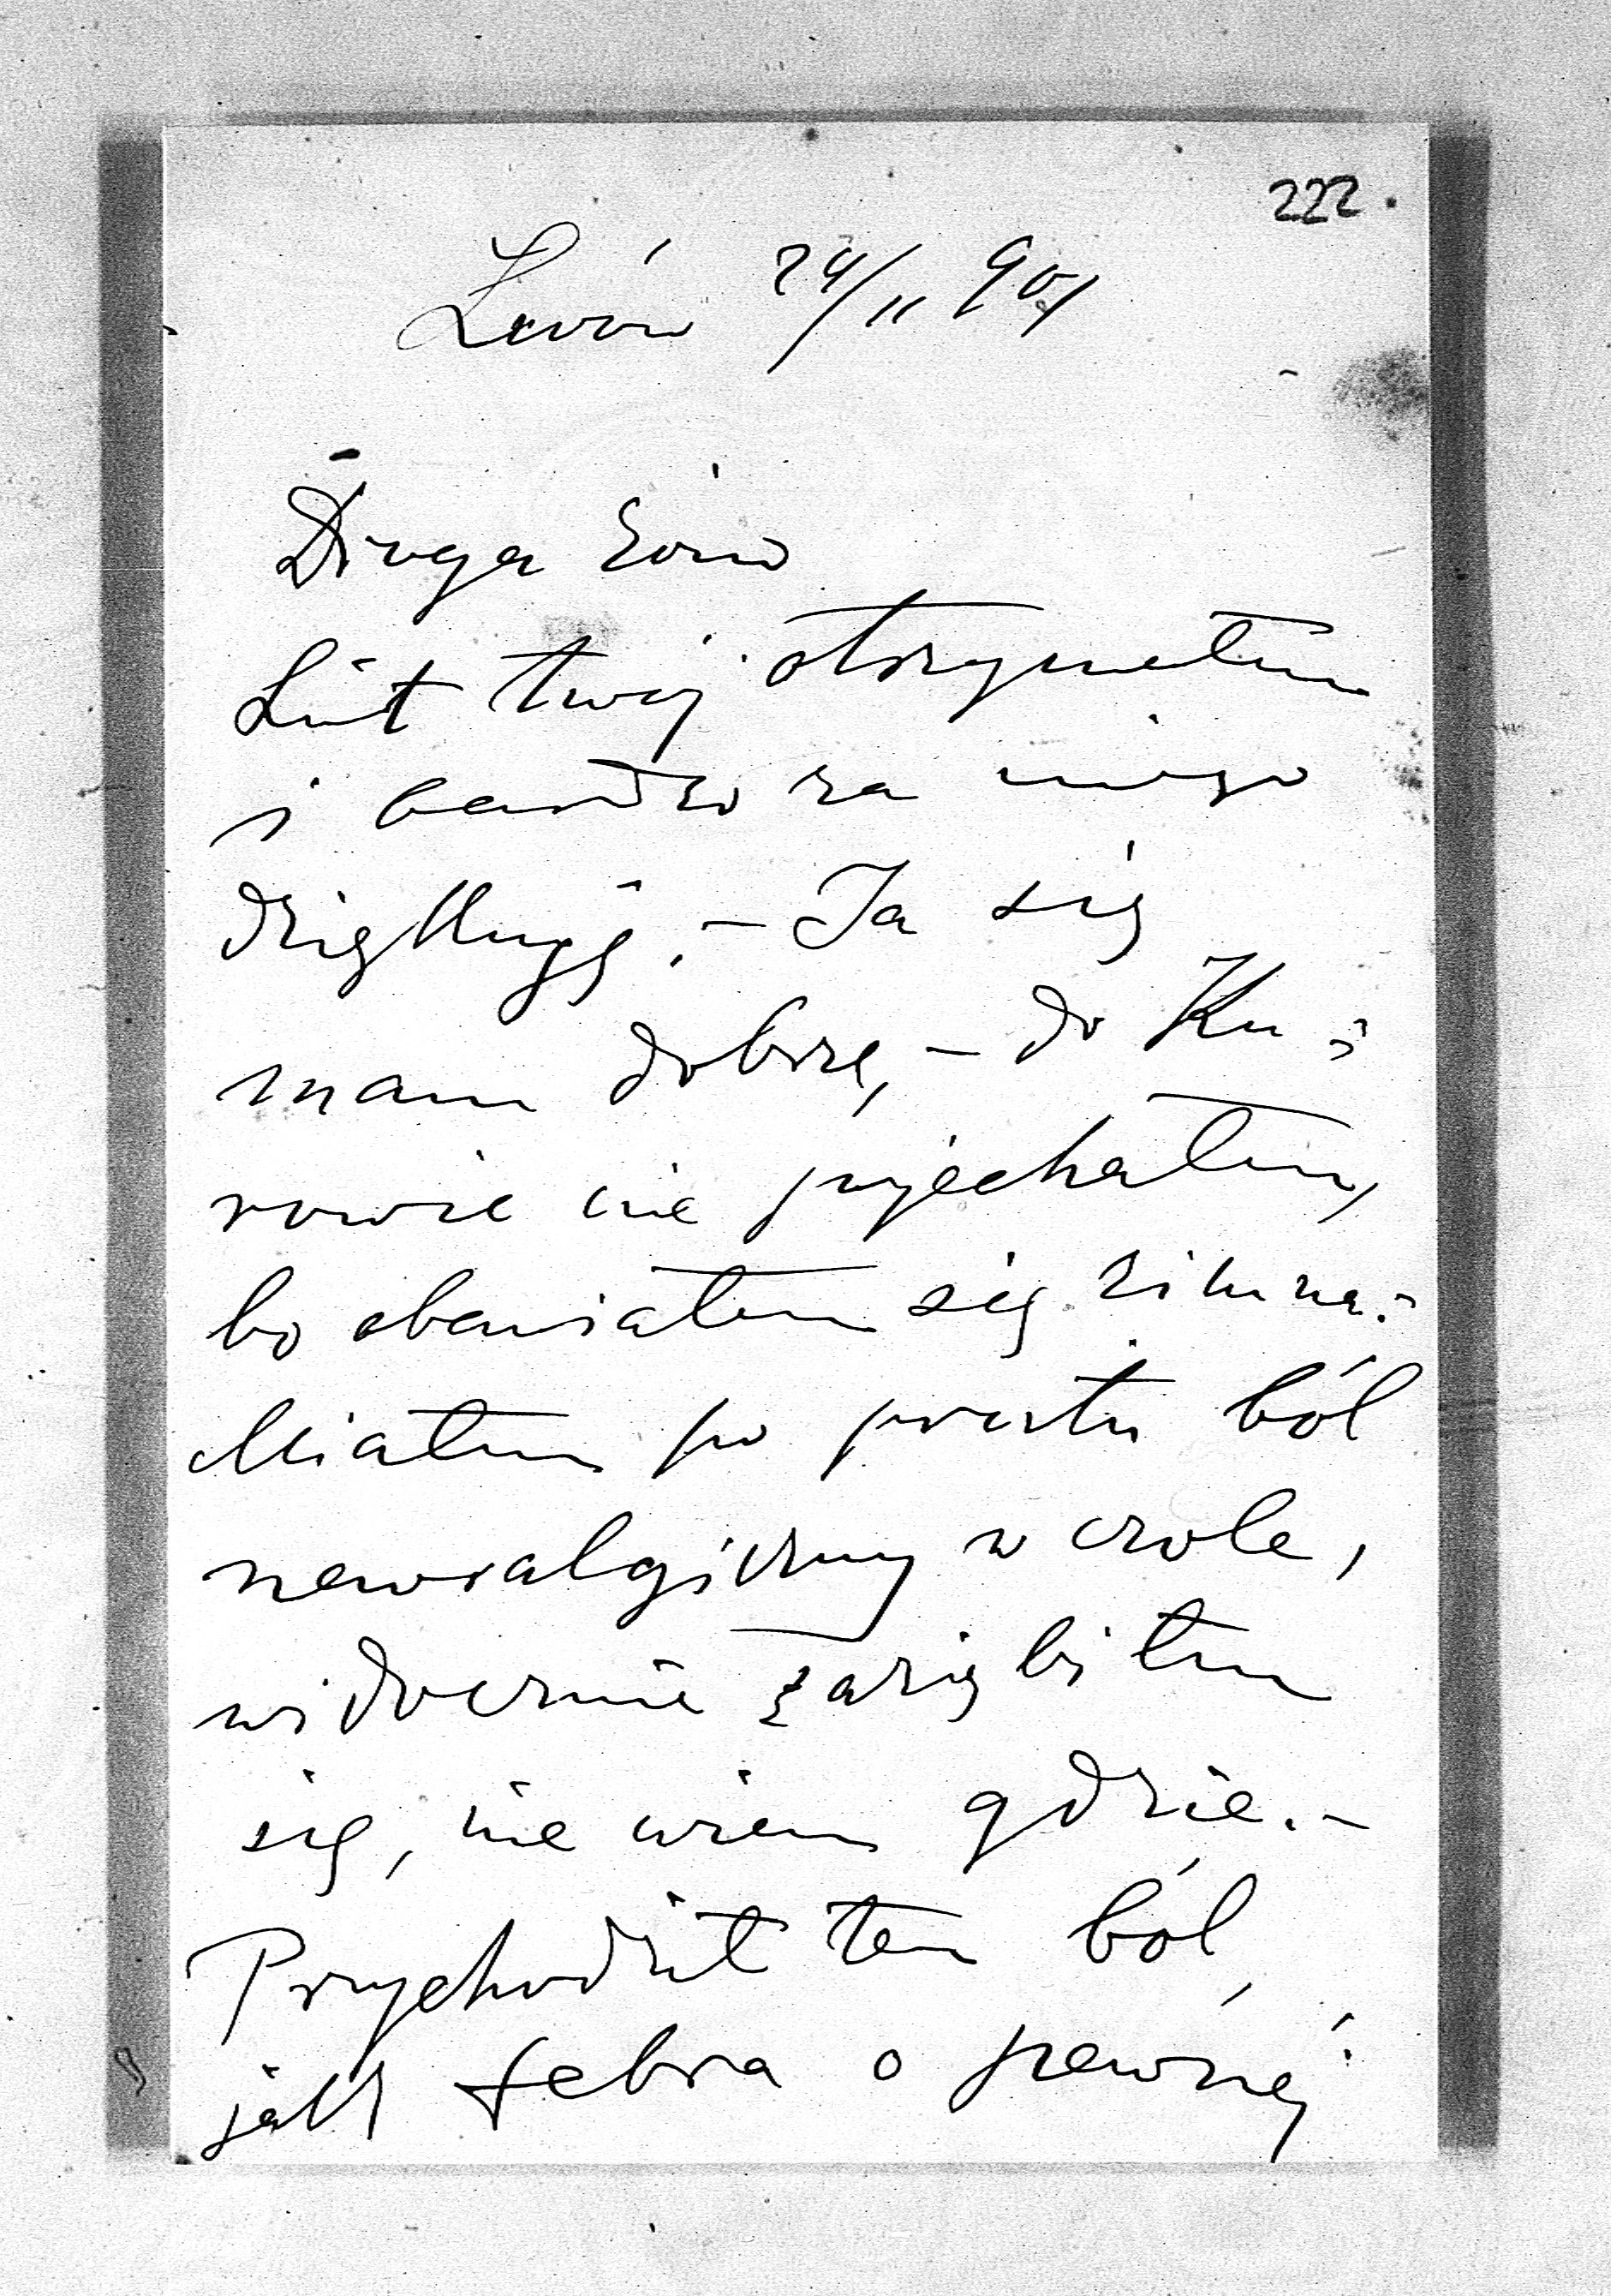 222.
Lwów 24/II 901
Droga Ewciu
List twój otrzymałem
i bardzo za niego
dziękuję. – Ja się
mam dobrze, – do Ku-
rowic nie pojechałem,
bo obawiałem się zimna. –
Miałem po prostu ból
newralgiczny w czole,
widocznie zaziębiłem
się, nie wiem gdzie. –
Przychodził ten ból,
jak febra o pewnej